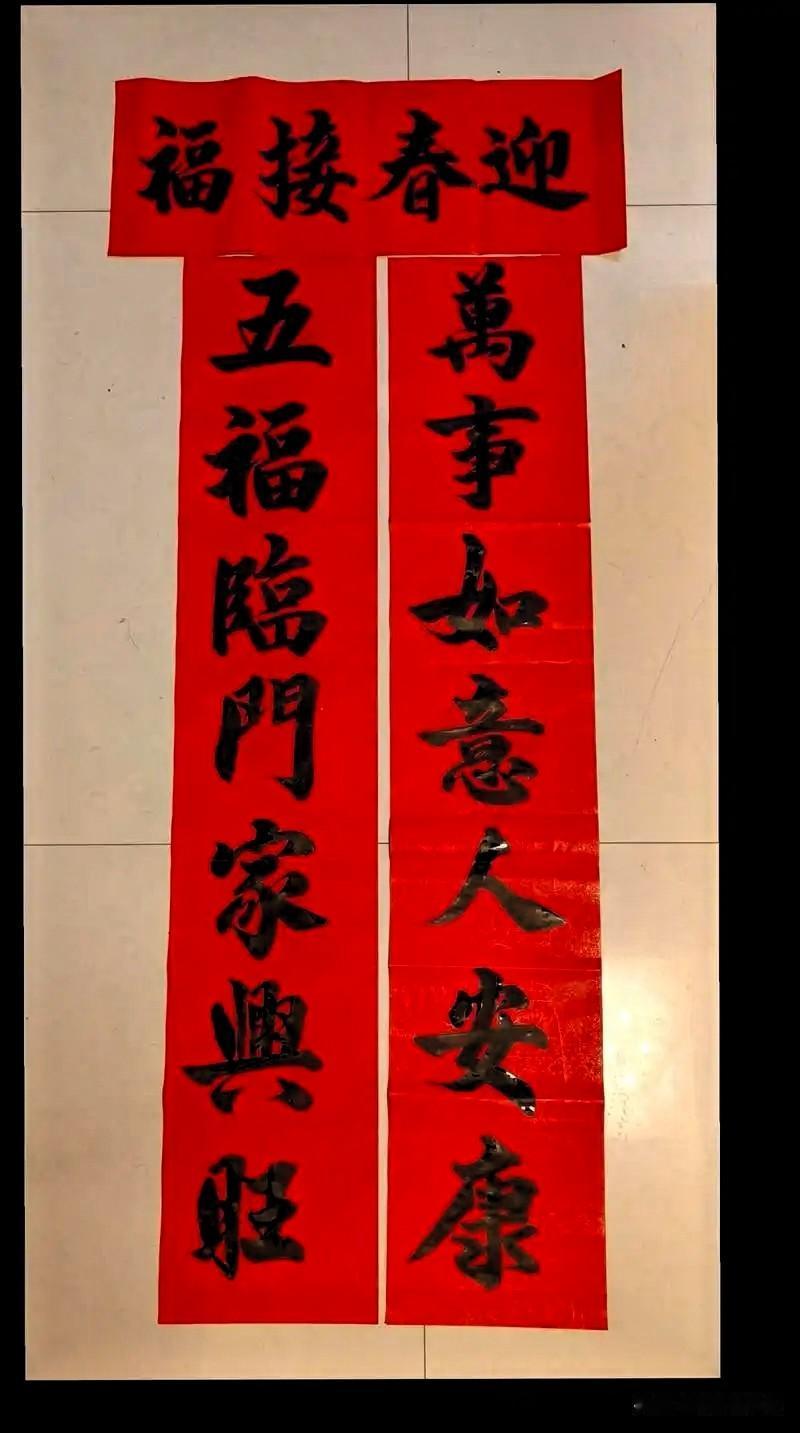 迎春接福
萬事如意人安康
五福臨門家興旺